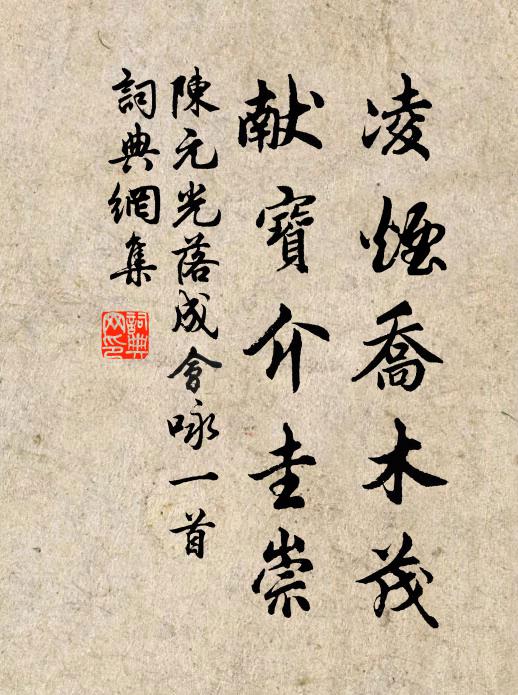 凌煙喬木茂
献寶介圭崇
陳元光落成會咏一首
詞典網集
詞典
网印